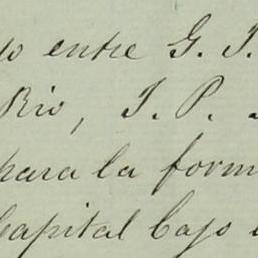 entre G. T.
Rio, T. P.
para la form
Capital bajo